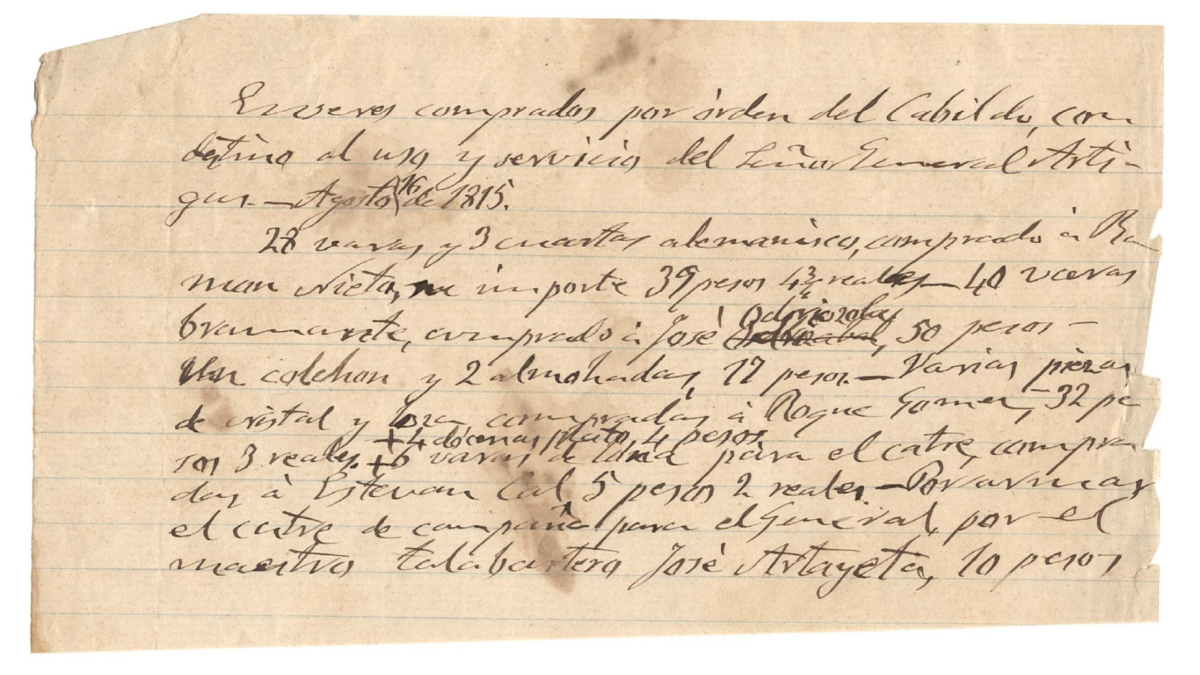 Enseres comprados por órden del Cabildo, con
destino al uso y servicio del Señor General Arti-
gas.— Agosto 16 de 1815.
28 varas y 3 cuartas alemanisco, comprado à Ra
mon Nieto, su importe 39 pesos 4 3/4 reales — 40 varas
bramante, comprado à José Odriozola, 50 pesos —
Un colchon y 2 almohadas, 17 pesos. — Varias piezas
de cristal y loza, compradas à Roque Gomez, — 32 pe
+ 4 docenas plato, 4 pesos
sos 3 reales. + 6 varas de lona para el catre, compra-
das à Estevan Cal, 5 pesos 2 reales — Por armar
el catre de campaña para el General, por el
maestro talabartero José Artayeta, 10 pesos